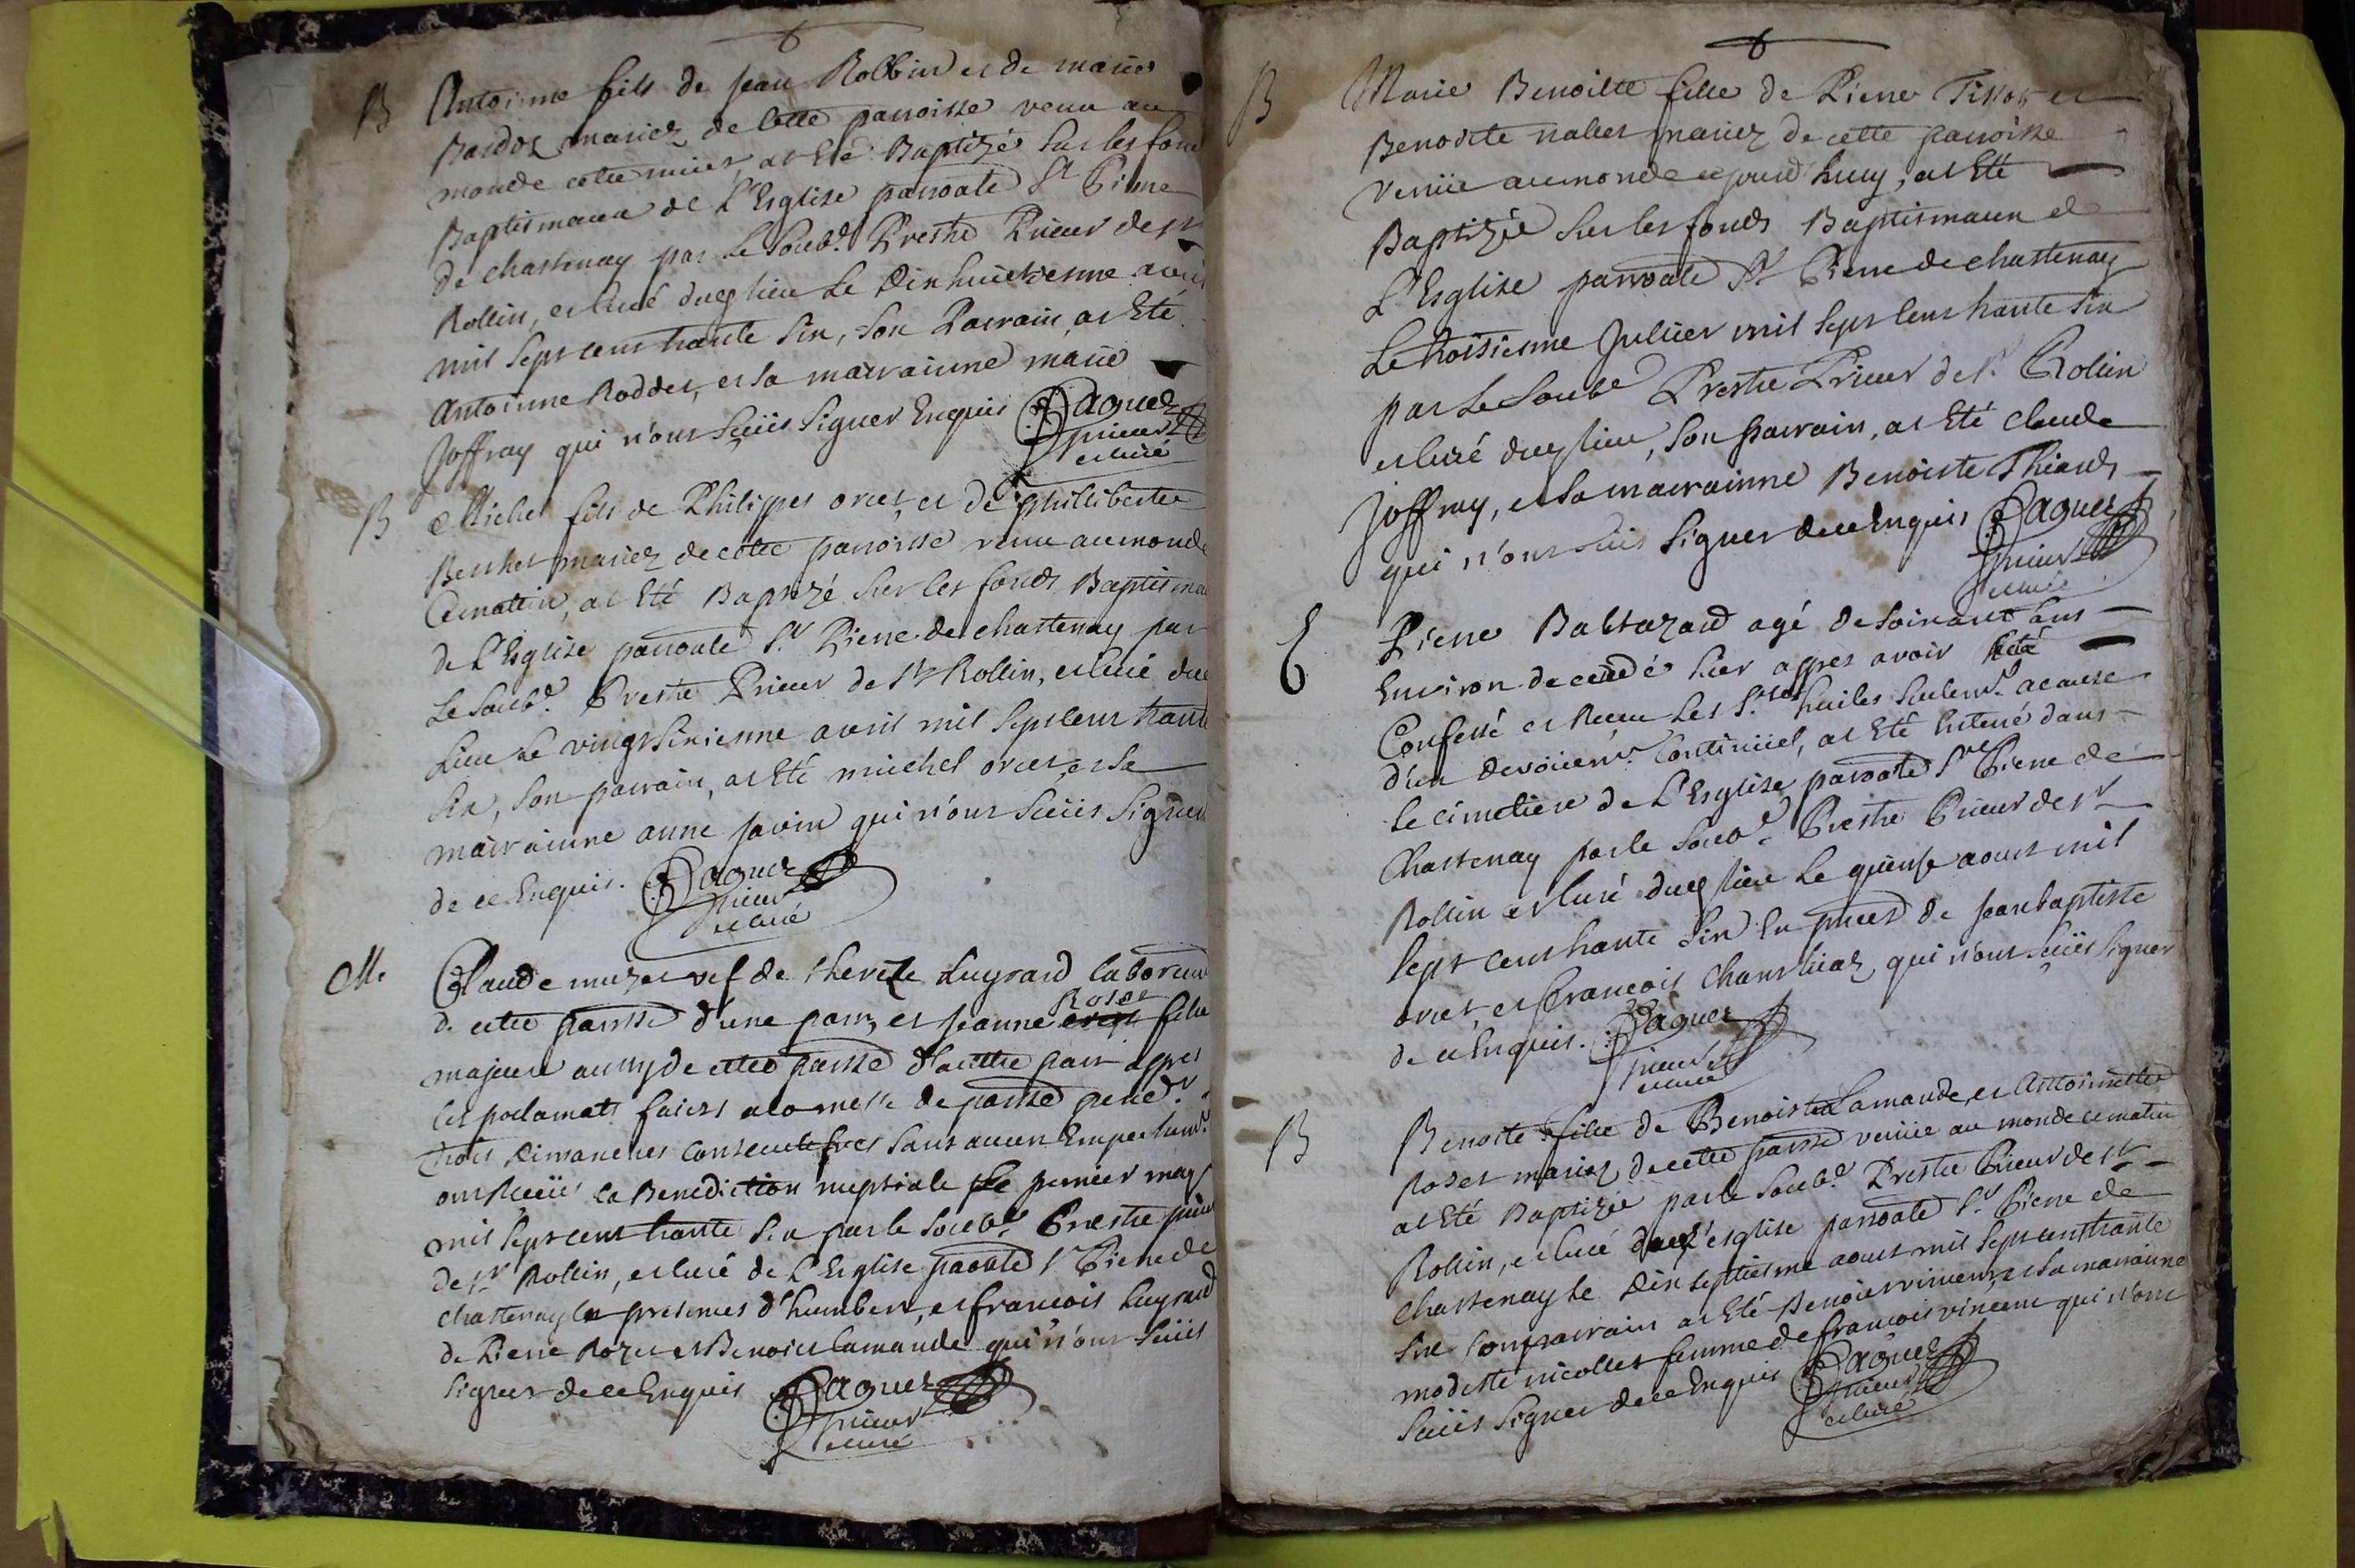 B Antoinne fils de Jean Robbin et de marie
Bardoz mariez de cette parroisse venu au
monde cette nuict, at Eté Baptizé sur les fon
Baptismaux de L'Eglise parroale St Pierre
de chastenay par le Soub.é Prestre Prieur de st
Rollin, et Curé dueg lieu le Dixhuictiesme avril
mil Sept cent trante Six, Son Parrain at Eté
Antoinne Rodder, et sa marrainne marie
Joffray qui n'ont Sceüs Signer Enquis Paquez
prieur
et curé
B Michel fils de Philippes oret, et de philliberte
Berthet mariez de cette parroisse venu au monde
Cematin, at Eté Baptizé Sur les fonds Baptisma
de L'Eglise parroale St Pierre de chastenay par
Le Soub.é Prestre Prieur de St Rollin, et Curé du
Lieu Le vingt Sixiesme avril mil Sept Cent trant
Six, Son parrain, at Eté michel oret, et Sa
marrainne anne Javin qui n'ont Sceüs Signer
de ce Enquis. Paquez
prieur
et curé
M. Claude muzet vef de thereze Lugrand laboreur
de cette parrsse d'une part, et Jeanne Rozet fille
majeure aussy de cette parrsse d'aultre part appres
les proclamats faicts a la messe de parrsse pend.t
trois Dimanches Consecutifves Sans aucun Empechem.t
ont Receüs la Benediction nuptiale Le premier may
mil Sept cent trante Six par le Soub.é Prestre prieur
de st Rollin, et Curé de L'Eglise parroale St Pierre de
chastenay En presences d'humbert, et francois Lugrand
de Pierre Rozet et Benoict Lamande qui n'ont Sceüs
Signer de ce Enquis Paquez
prieur
et curé
B Marie Benoitte fille de Pierre Tissot et
Benoitte nallet mariez de cette parroisse
Venüe au monde ce jourd'huy, at Eté
Baptizée Sur les fonds Baptismaux de
L'Esglise parroale St Pierre de chastenay
Le troisiesme Juillet mil Sept Cent trante Six
par Le Soub.é Prestre Prieur de St Rollin
et Curé dueg lieu, Son parrain, at Eté Claude
Joffray, et Sa marrainne Benoiste Thiand
qui n'ont Sceüs Signer de ce Enquis Paquez
prieur
et curé
E Pierre Baltazard agé de Soixant ans
Environ decedé hier appres avoir Eté
Confessé et Receu Les Stes huiles Seulem.t acause
d'un devoiem.t Continüel, at Eté Enterré dans
Le cimetiere de L'Esglise parroale St Pierre de
Chastenay par le Soub.é Prestre Prieur de st
Rollin et Curé dueg lieu le quinse aoust mil
Sept cent trante Six En pnces de Jeanbaptiste
oret, et francois Chanthiaz qui n'ont Sceüs Signer
de ce Enquis. Paquez
prieur
et curé
B Benoite fille de Benoist Lamande, et Antoinette
Rozet mariez de cette parrsse venüe au monde ce matin
at Eté Baptizée par le Soub.é Prestre Prieur de st
Rollin, et Curé de L'esglise parroale St Pierre de
Chastenay Le Dix Septiesme aoust mil Sept cent trante
Six Son parrain at Eté Benoict vincent, et Sa marrainne
modeste nicollet femme de francois vincent qui n'ont
Sceüs Signer de ce Enquis Paquez
prieur
et curé